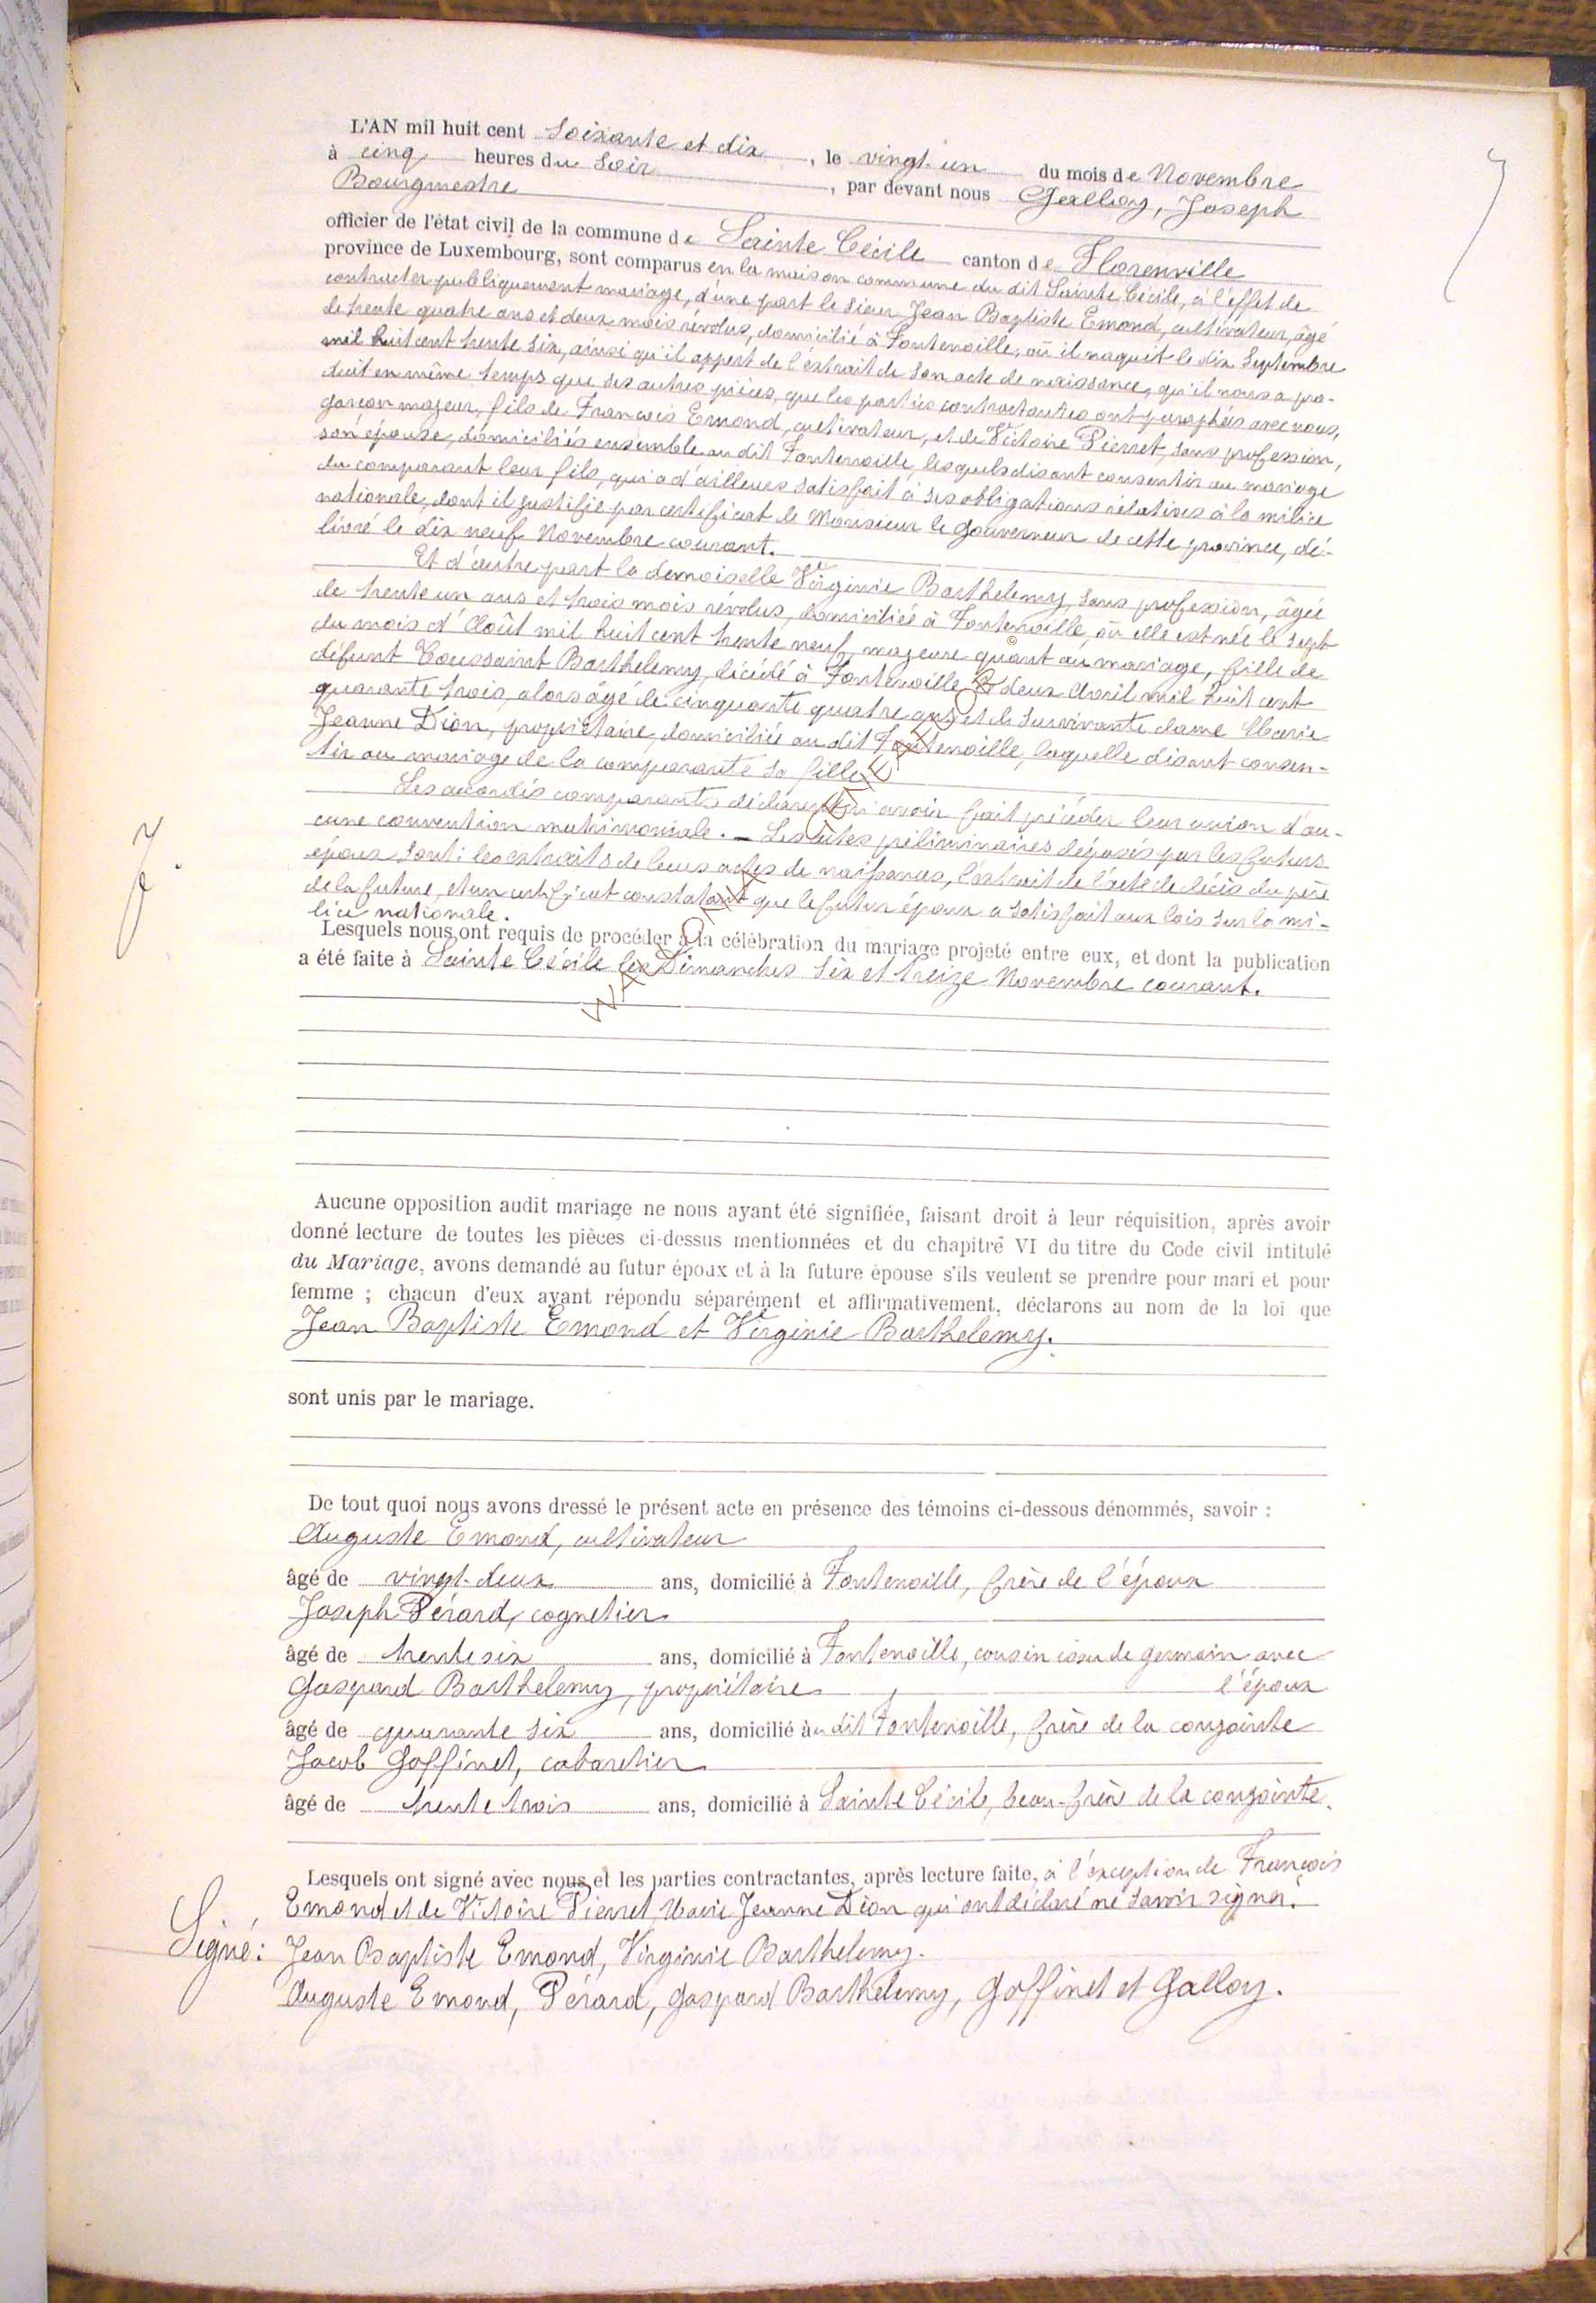 L'AN mil huit cent Soixante et dix, le vingt-un du mois de Novembre
à cinq heures du Soir, par devant nous Galloy, Joseph
Bourgmestre
officier de l'état civil de la commune de Sainte Cécile canton de Florenville
province de Luxembourg, sont comparus en la maison commune du dit Sainte Cécile, à l'effet de
contracter publiquement mariage, d'une part le sieur Jean Baptiste Emond, cultivateur, âgé
de trente quatre ans et deux mois révolus, domicilié à Fontenoille, où il naquit le dix Septembre
mil huit cent trente six, ainsi qu'il appert de l'extrait de son acte de naissance, qu'il nous a pro-
duit en même temps que ses autres pièces, que les parties contractantes ont paraphées avec nous,
garçon majeur, fils de François Emond, cultivateur, et de Victoire Pierret, sans profession,
son épouse, domiciliés ensemble au dit Fontenoille, lesquels disant consentir au mariage
du comparant leur fils, qui a d'ailleurs satisfait à ses obligations rélatives à la milice
nationale, dont il justifie par certificat de Monsieur le Gouverneur de cette province, dé-
livré le dix neuf Novembre courant.
Et d'autre part la demoiselle Virginie Barthelemy, sans profession, âgée
de trente un ans et trois mois révolus, domiciliée à Fontenoille, où elle est née le sept
du mois d'Août mil huit cent trente neuf, majeure quant au mariage, fille de
défunt Toussaint Barthelemy, décédé à Fontenoille le deux Avril mil huit cent
quarante trois, alors âgé de cinquante quatre ans et de survivante dame Marie
Jeanne Dion, propriétaire, domiciliée au dit Fontenoille, laquelle disant consen-
tir au mariage de la comparante sa fille
Les accordés comparants déclarent n'avoir fait précéder leur union d'au-
cune convention matrimoniale. — Les actes préliminaires déposés par les futurs
époux sont: les extraits de leurs actes de naissances, l'extrait de l'acte de décès du père
de la future, et un certificat constatant que le futur époux a satisfait aux lois sur la mi-
lice nationale.
Lesquels nous ont requis de procéder à la célébration du mariage projeté entre eux, et dont la publication
a été faite à Sainte Cécile les Dimanches six et treize Novembre courant.
Aucune opposition audit mariage ne nous ayant été signifiée, faisant droit à leur réquisition, après avoir
donné lecture de toutes les pièces ci-dessus mentionnées et du chapitre VI du titre du Code civil intitulé
du Mariage, avons demandé au futur époux et à la future épouse s'ils veulent se prendre pour mari et pour
femme ; chacun d'eux ayant répondu séparément et affirmativement, déclarons au nom de la loi que
Jean Baptiste Emond et Virginie Barthelemy.
sont unis par le mariage.
De tout quoi nous avons dressé le présent acte en présence des témoins ci-dessous dénommés, savoir :
Auguste Emond, cultivateur
âgé de vingt-deux ans, domicilié à Fontenoille, frère de l'époux
Joseph Pérard, cognetier
âgé de trente six ans, domicilié à Fontenoille, cousin issu de germain avec
Gaspard Barthelemy, propriétaire l'époux
âgé de quarante six ans, domicilié au dit Fontenoille, frère de la conjointe
Jacob Goffinet, cabaretier
âgé de trente trois ans, domicilié à Sainte Cécile, beau-frère de la conjointe.
Lesquels ont signé avec nous et les parties contractantes, après lecture faite, à l'exception de François
Emond et de Victoire Pierret, Marie Jeanne Dion qui ont déclaré ne savoir signer.
Signé: Jean Baptiste Emond, Virginie Barthelemy.
Auguste Emond, Pérard, Gaspard Barthelemy, Goffinet et Galloy.